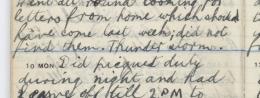 went all round looking for
letters from home which should
have come last week, did not
find them. Thunder worm.
10 MON Did picqued duty
during night and had
2 off till 2 PM to